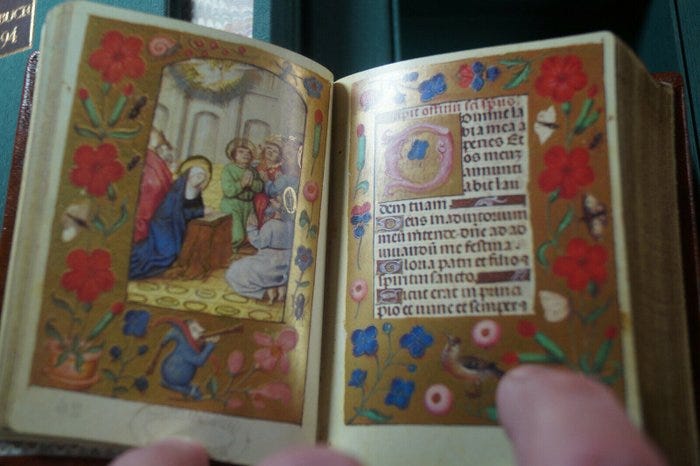 BUCH
94
ipit officiu sci spus.
Domine la
bia mea a
peries Et
os meuz
annunti
abit lau
dem tuam
Deus in adiutorium
meū intende dn̄e ad ad
iuuandū me festina
Gloria patri et filio
spiritui sancto
Sicut erat in princi
pio et nunc et semper